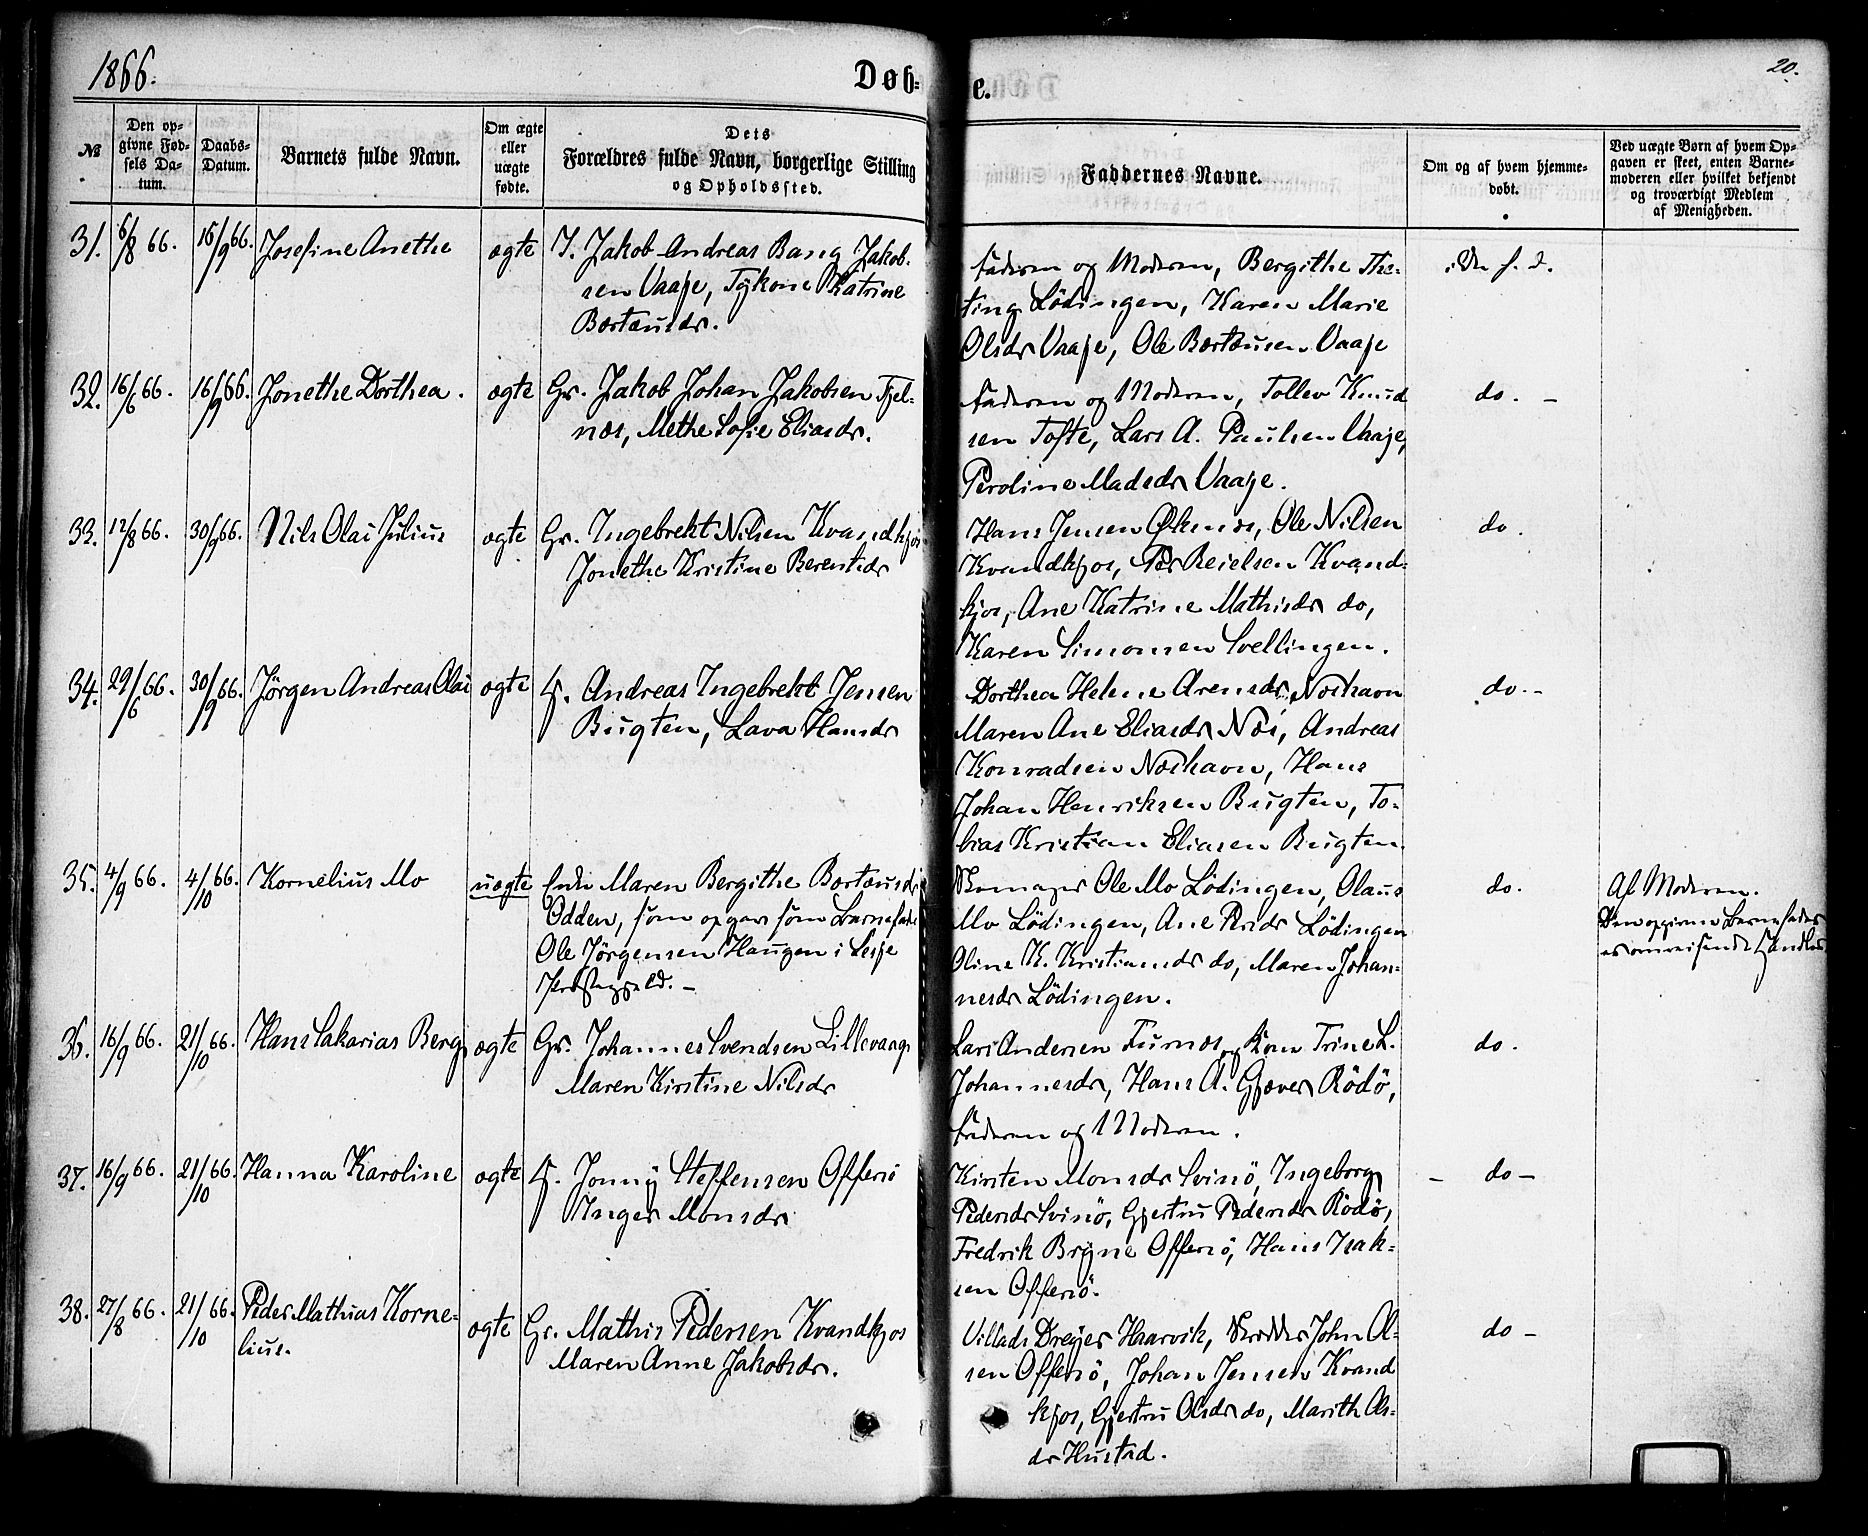 1866.
Døb-
e.
20.
№
Den op-
givne Fød-
sels Da-
tum.
Daabs-
Datum.
Barnets fulde Navn.
Om ægte
eller
uægte
fødte.
Dets
Forældres fulde Navn, borgerlige Stilling
og Opholdssted.
Faddernes Navne.
Om og af hvem hjemme-
døbt.
Ved uægte Børn af hvem Op-
gaven er skeet, enten Barne-
moderen eller hvilket bekjendt
og troværdigt Medlem
af Menigheden.
31. 6/8 66. 16/9 66. Josefine Anethe ægte I. Jakob Andreas Bang Jakob-
sen Vaaje, Tykone Katrine
Bortæusdr.
Faderen og Moderen, Bergithe The-
ting Lödingen, Karen Marie
Olsdr Vaaje, Ole Bortæusen Vaaje
i Dn f. d.
32. 16/6 66. 16/9 66. Jonethe Dorthea. ægte Gr. Jakob Johan Jakobsen Fjel-
næs, Methe Sofie Eliasdr.
Faderen og Moderen, Tollev Knud
sen Tofte, Lars A. Paulsen Vaaje,
Peroline Madsdr Vaaje.
do. –
33. 12/8 66. 30/9 66. Nils Olai Julius ægte Gr. Ingebrekt Nilsen Kvandkjos
Jonethe Kristine Berentsdr
Hans Jensen Øksnæs, Ole Nilsen
Kvandkjos, Per Reielsen Kvand-
kjos, Ane Katrine Mathisdr do,
Karen Simonsen Svellingen.
do.
34. 29/6 66. 30/9 66. Jörgen Andreas Olai ægte Andreas Ingebrekt Jensen
Bugten, Lava Hansdr
Dorthea Helene Arensdr Næshavn
Maren Ane Eliasdr Næs, Andreas
Konradsen Næshavn, Hans
Johan Henriksen Bugten, To-
bias Kristian Eliasen Bugten.
do. –
35. 4/9 66. 4/10 66. Kornelius Mo uægte Enke Maren Bergithe Bortæusdr
Odden, som opgav som Barnefader
Ole Jörgensen Haugen i Lesje
Præstegjeld. –
Skomager Ole Mo Lödingen, Olaus
Mo Lödingen, Ane Persdr Lödingen
Oline K. Kristiansdr do, Maren Johan-
nesdr Lödingen.
do.
Af Moderen.
Den opgivne Barnefader
er omreisende Handler
36. 16/9 66. 21/10 66. Hans Sakarias Berg ægte Gr. Johannes Svendsen Lillevang
Maren Kirstine Nilsdr
Lars Andersen Furnæs og Kone Trine L.
Johannesdr, Hans A. Gjæver Rödö,
Faderen og Moderen.
do.
37. 16/9 66. 21/10 66. Hanna Karoline ægte Jonny Steffensen Offersö
Inger Monsdr
Kirsten Monsdr Svinö, Ingeborg
Pedersdr Svinö, Gjertru Pedersdr Rödö,
Fredrik Bryne Offersö, Hans Isak-
sen Offersö.
– do –
38. 27/8 66. 21/10 66. Peder Mathias Korne-
lius.
ægte Gr. Mathis Pedersen Kvandkjos
Maren Anne Jakobsdr.
Villads Dreyer Haarvik, Skrædder John Ol-
sen Offersö, Johan Jensen Kvand
kjos, Gjertru Olsdr do, Marith Ols-
dr Hustad.
do –